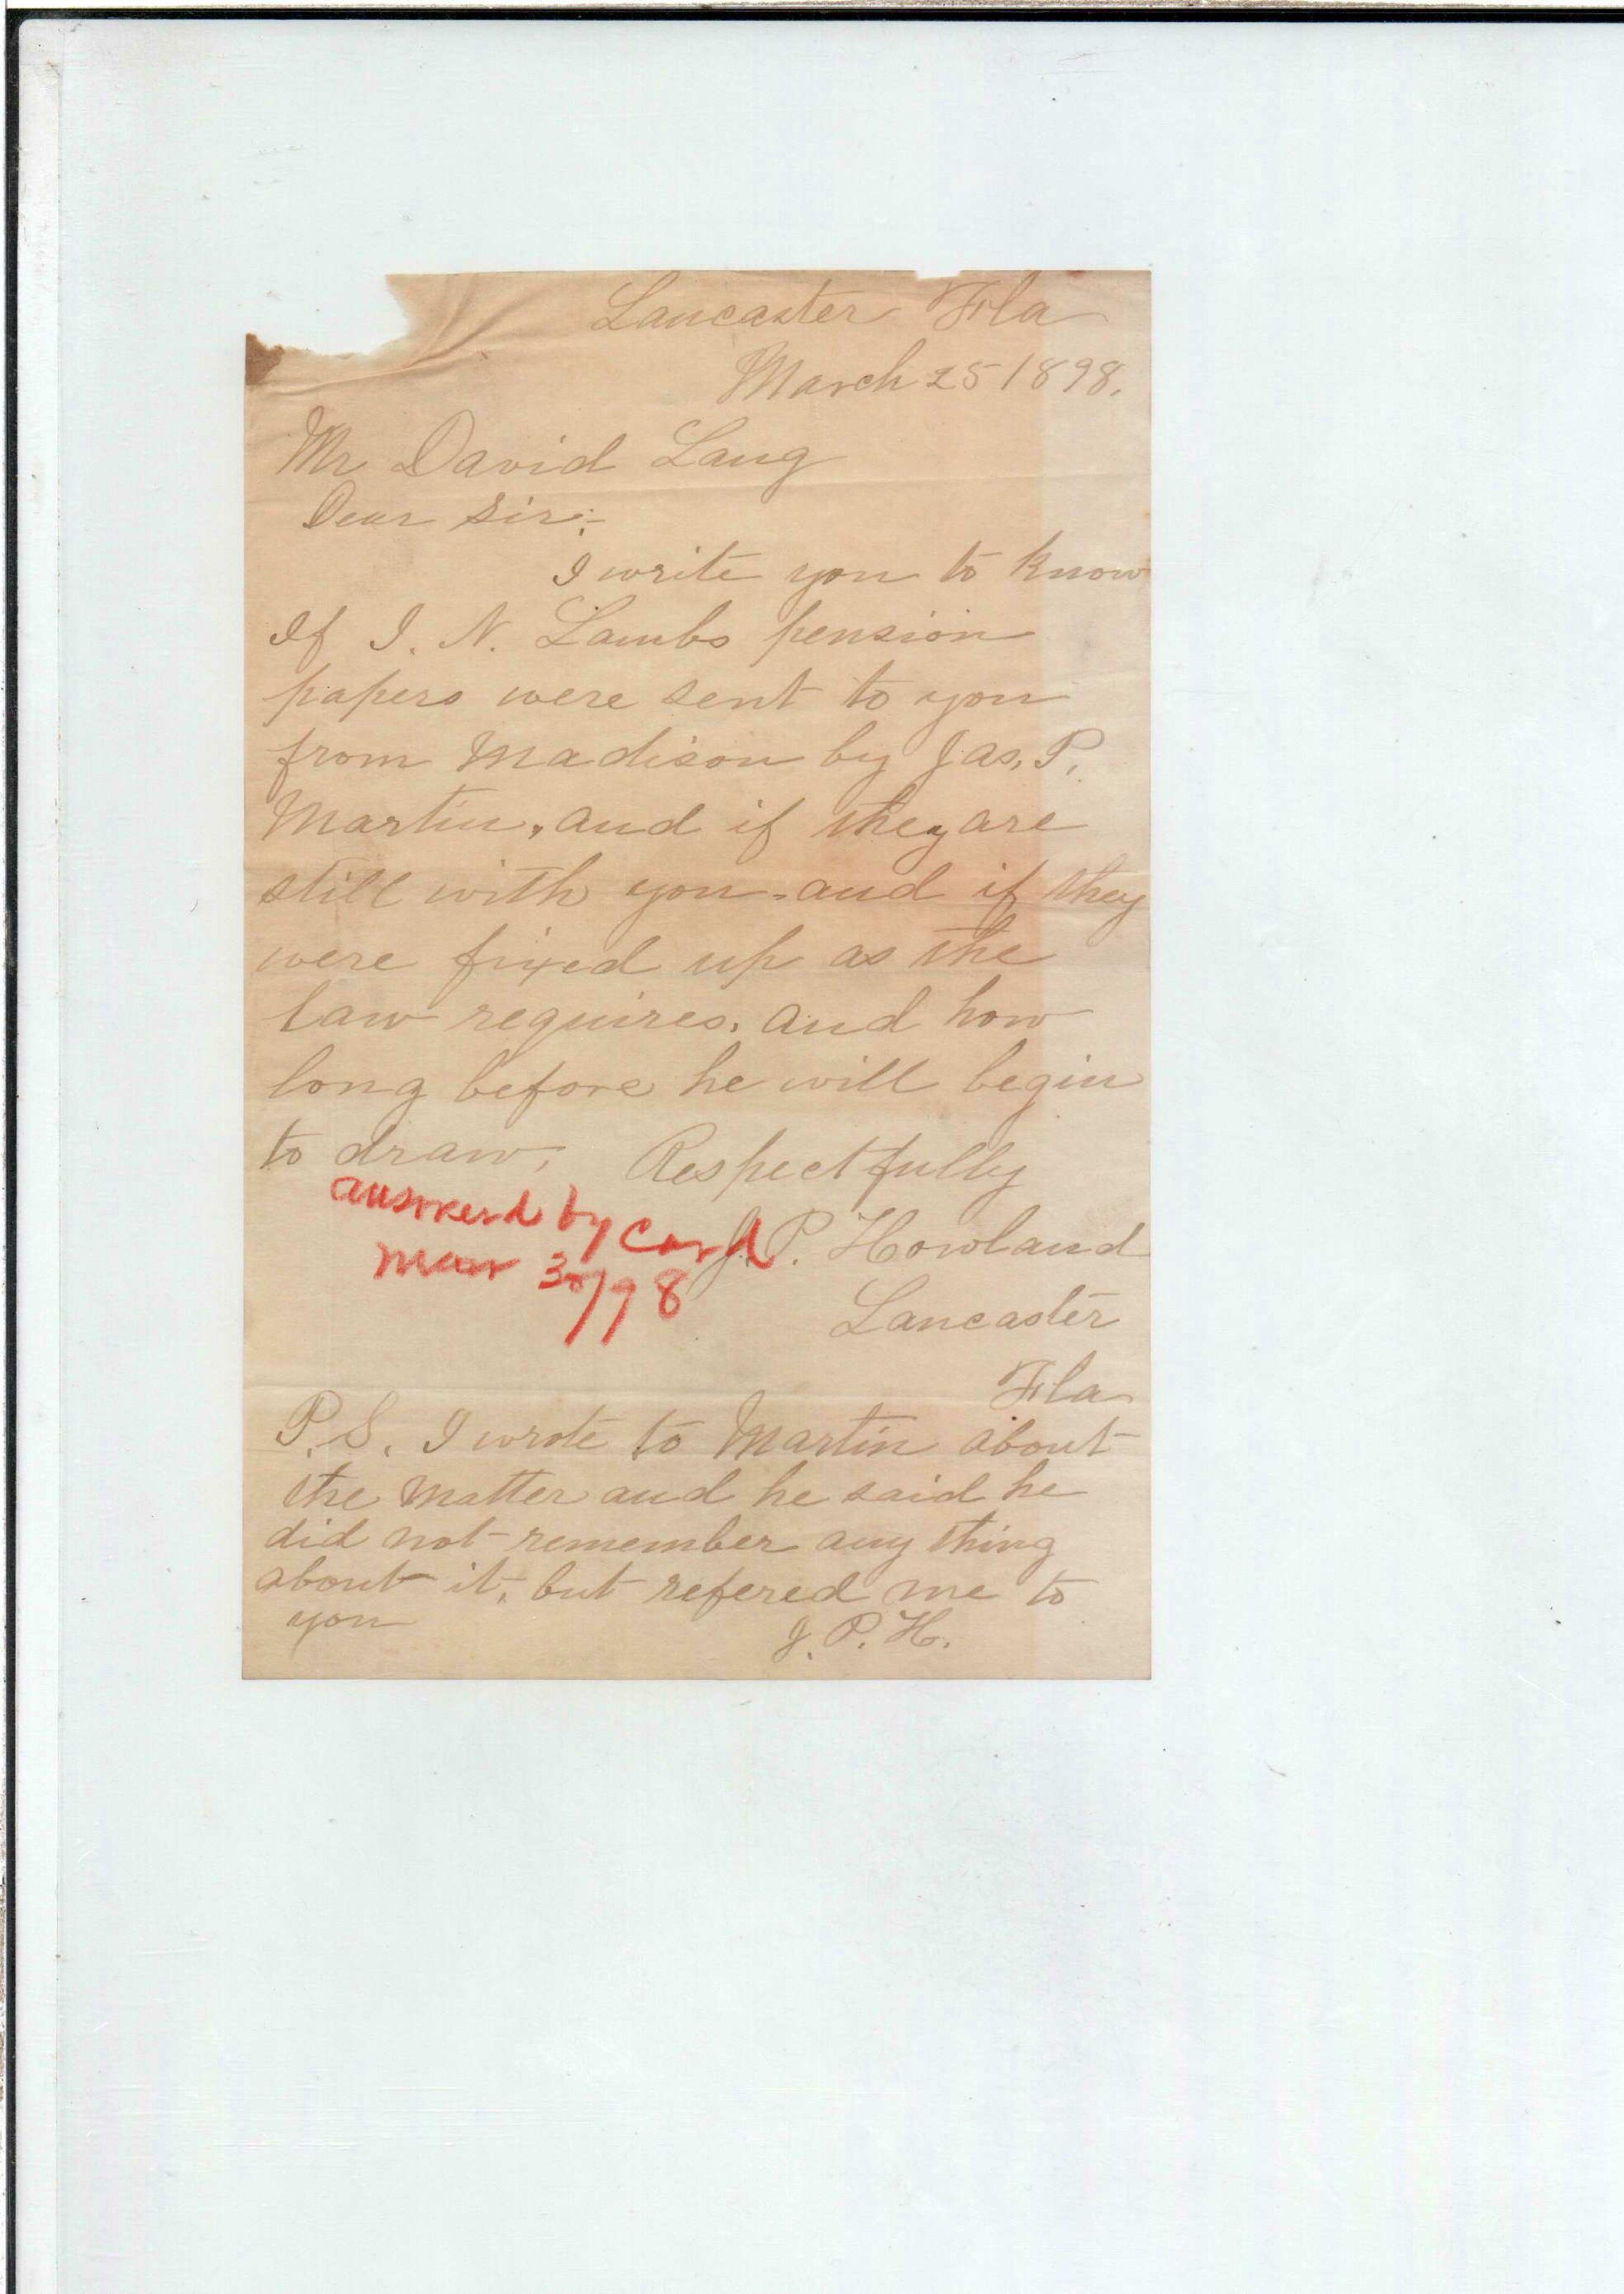 Lancaster Fla
March 25 1898.
Mr David Lang
Dear Sir:-
I write you to know
If I. N. Lambs pension
papers were sent to you
from Madison by Jas, P.
Martin, and if they are
still with you - and if they
were fixed up as the
law requires. and how
long before he will begin
to draw, Respectfully
answerd by card
Mar 30/98
J. P. Howland
Lancaster
Fla
P. S. I wrote to Martin about
the matter and he said he
did not remember any thing
about it, but refered me to
you
J. P. H.